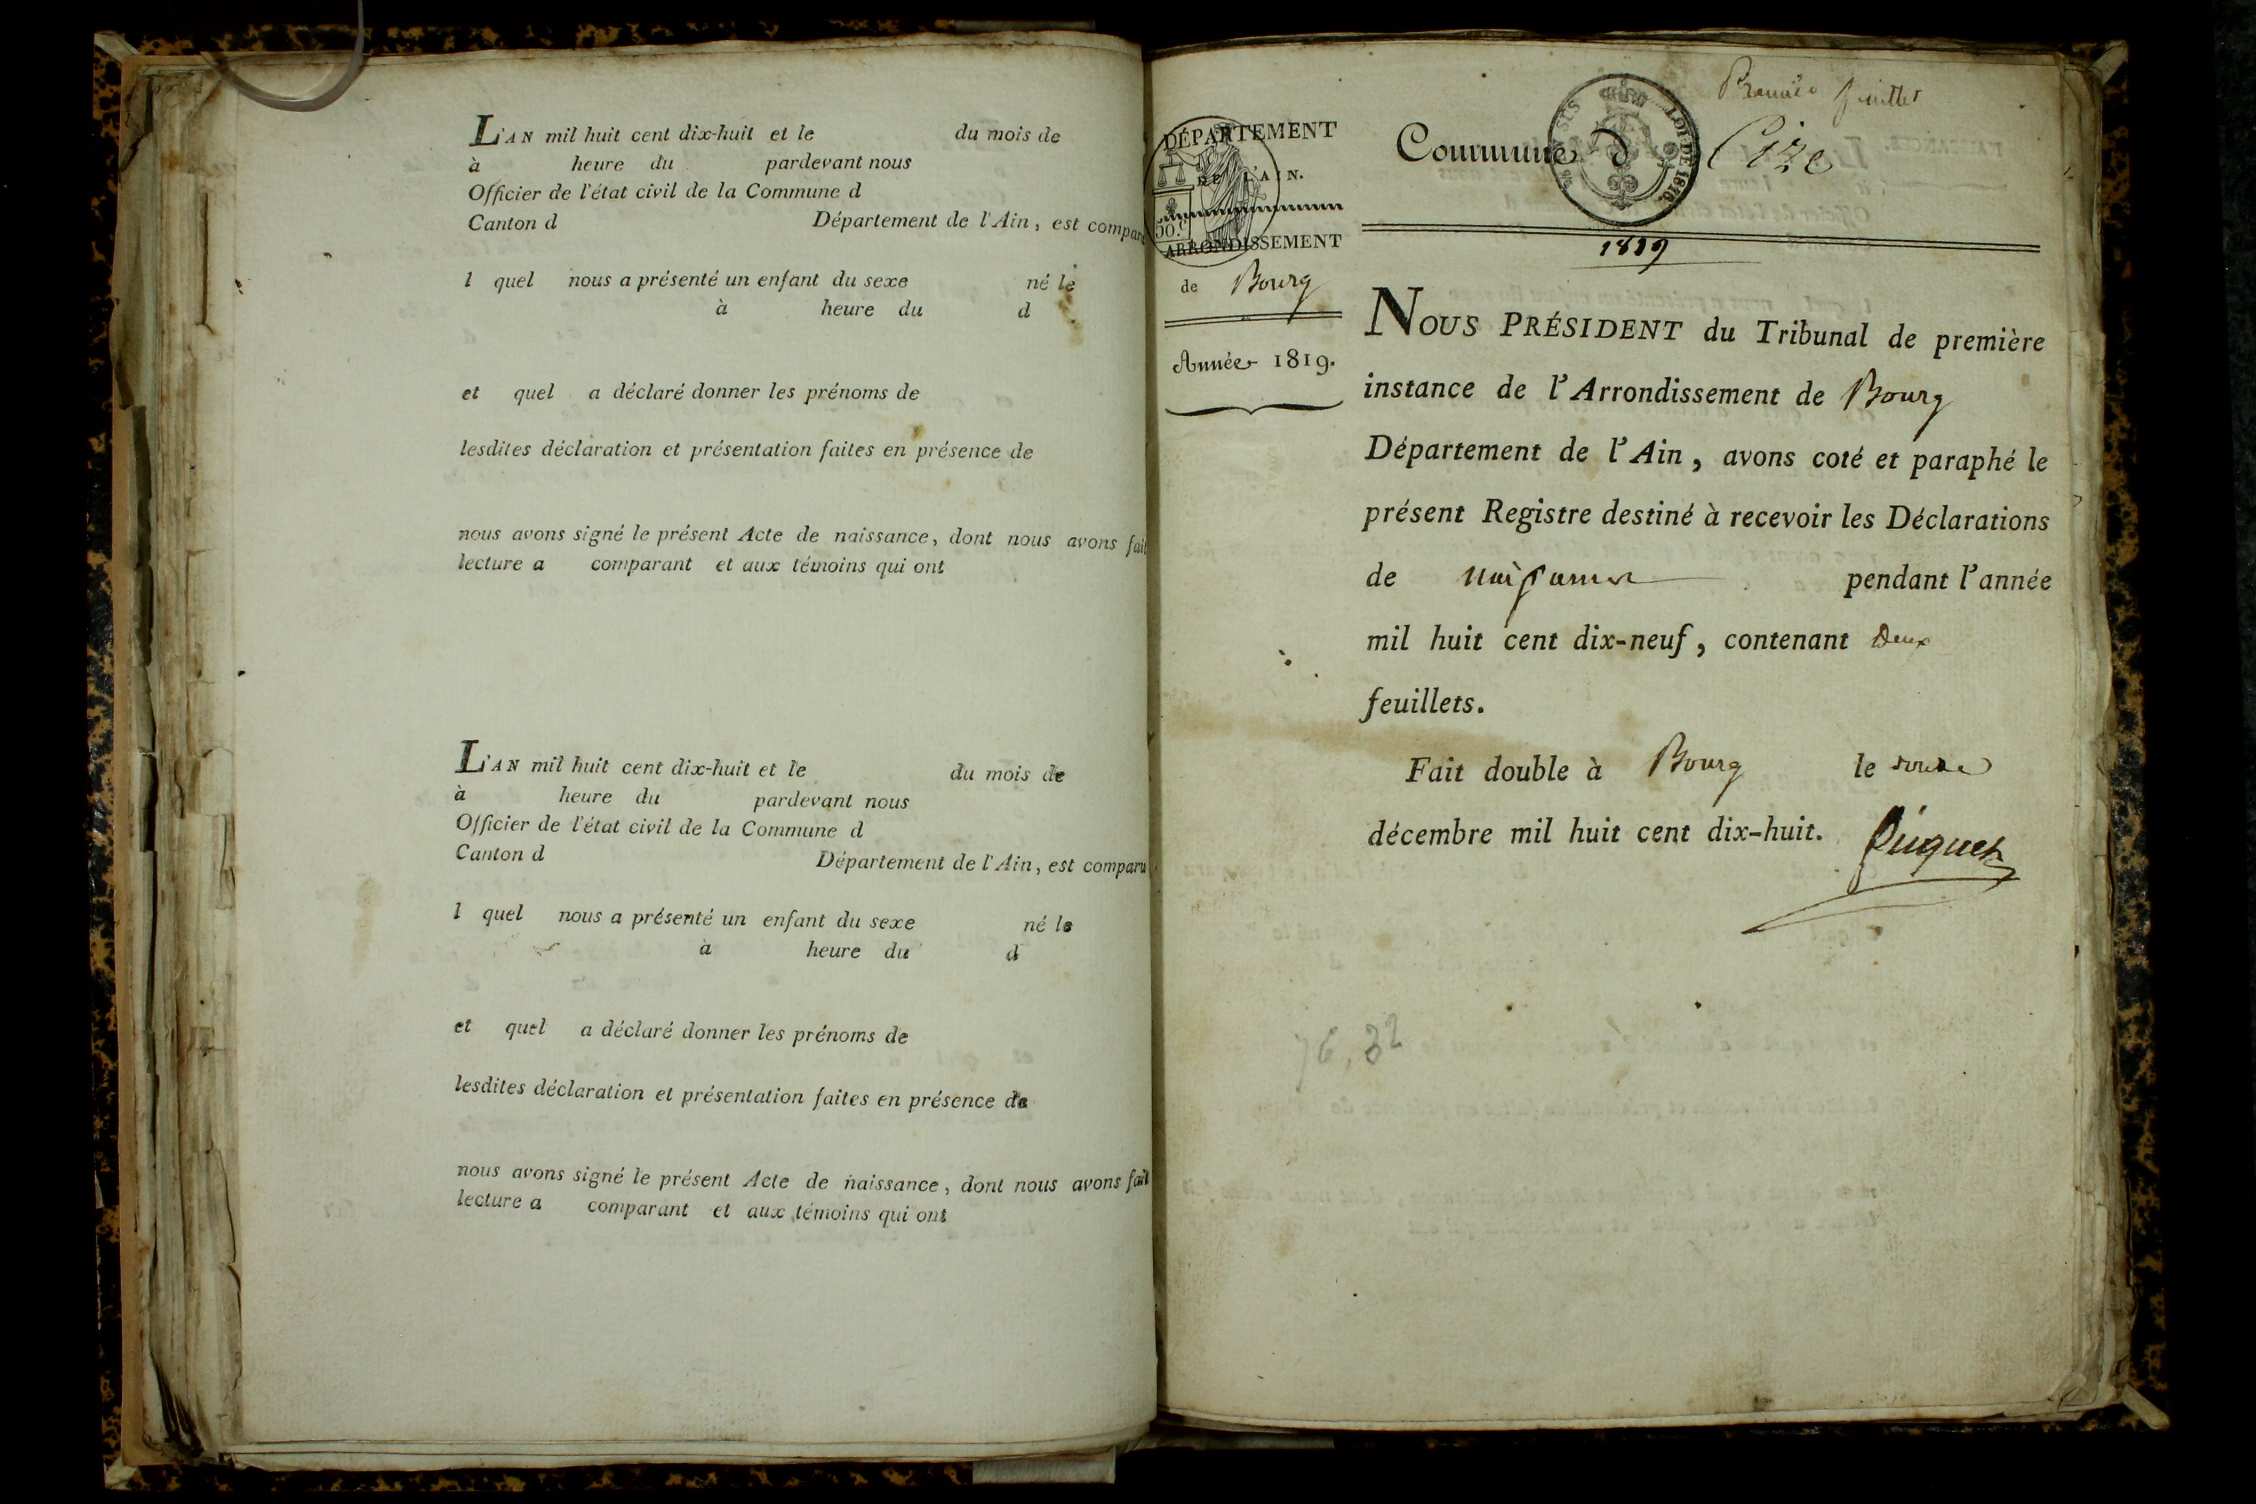 L'AN mil huit cent dix-huit et le du mois de
à heure du pardevant nous
Officier de l'état civil de la Commune d
Canton d Département de l'Ain, est compar
l quel nous a présenté un enfant du sexe né le
à heure du d
et quel a déclaré donner les prénoms de
lesdites déclaration et présentation faites en présence de
nous avons signé le présent Acte de naissance, dont nous avons fait
lecture a comparant et aux témoins qui ont
L'AN mil huit cent dix-huit et le du mois de
à heure du pardevant nous
Officier de l'état civil de la Commune d
Canton d Département de l'Ain, est comparu
l quel nous a présenté un enfant du sexe né le
à heure du d
et quel a déclaré donner les prénoms de
lesdites déclaration et présentation faites en présence de
nous avons signé le présent Acte de naissance, dont nous avons fait
lecture a comparant et aux témoins qui ont
DÉPARTEMENT
DE L'AIN.
50 c
ARRONDISSEMENT
de Bourg
Année 1819.
feuillet
Commune d Cize
LOI DE 1816.
1819
NOUS PRÉSIDENT du Tribunal de première
instance de l'Arrondissement de Bourg
Département de l'Ain, avons coté et paraphé le
présent Registre destiné à recevoir les Déclarations
de naissance pendant l'année
mil huit cent dix-neuf, contenant Deux
feuillets.
Fait double à Bourg le
décembre mil huit cent dix-huit.
76,32